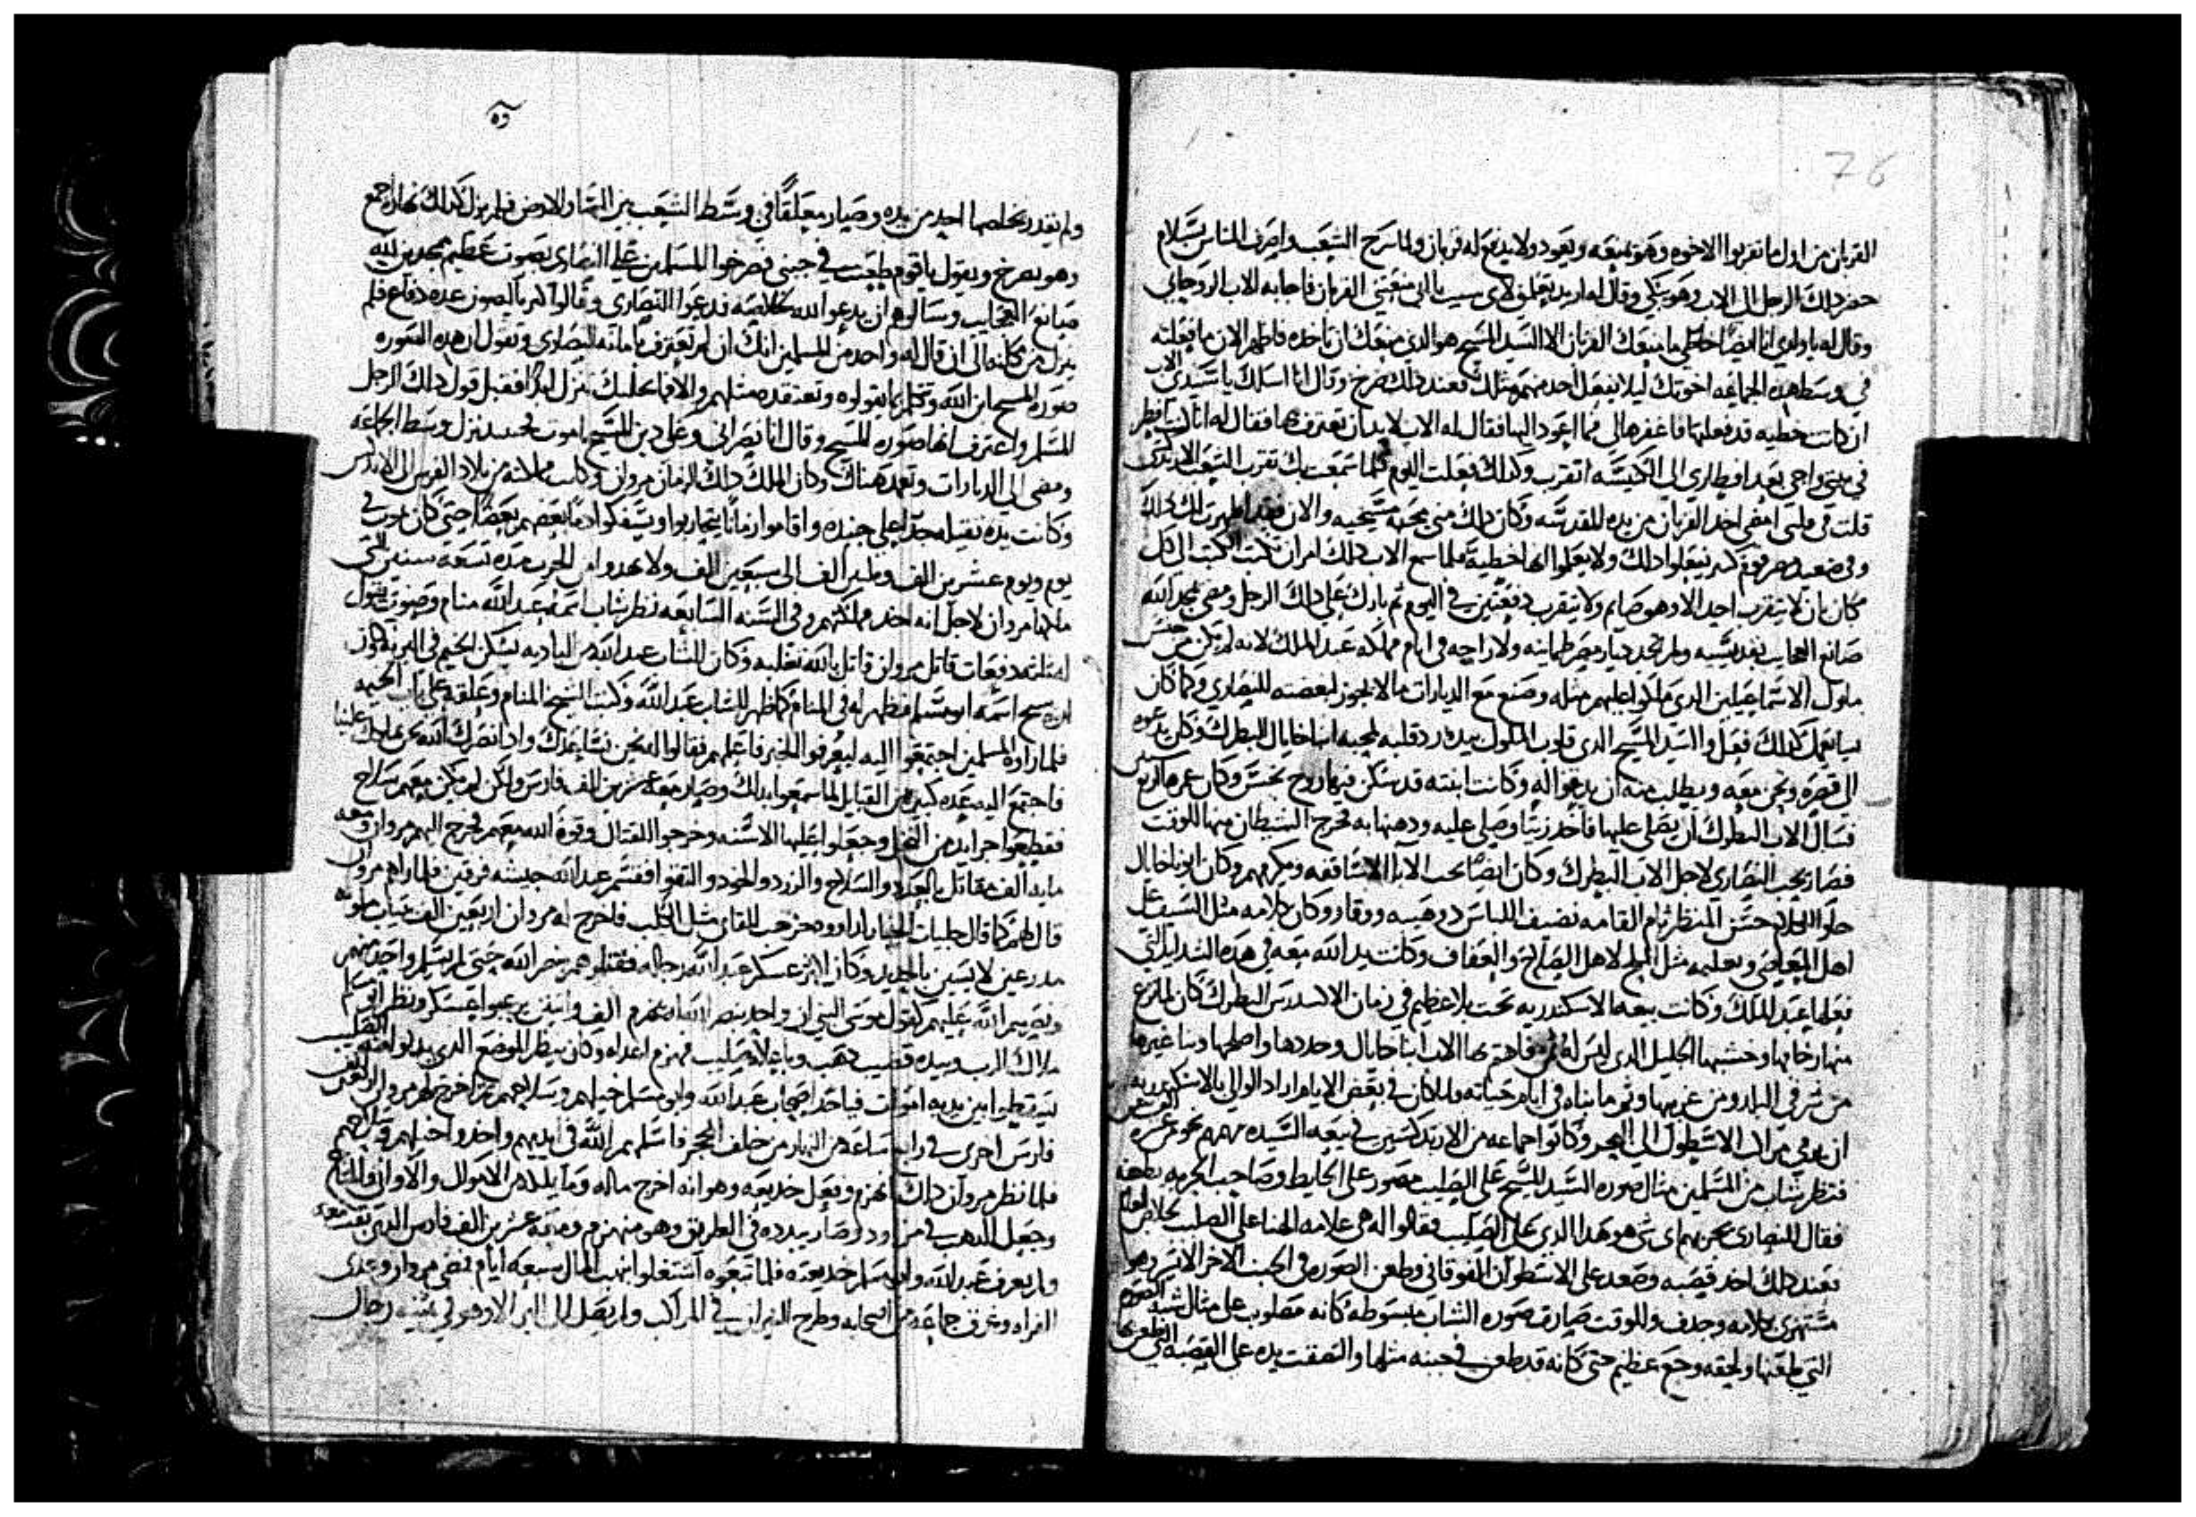 76
القربان من اول ما تقربوا الاخوه وهو يمنعه ويعود ولا يدفع له قربان ولما سرح الشعب واصرف الناس بسلام
حضر ذلك الرجل الى الاب وهو يبكي وقال له اريد تعلمني لاى سبب يا ابى منعتني القربان فاجابه الاب الروحاني
وقال له يا ولدي انا ايضا خاطي ما منعتك القربان الا السيد المسيح هو الذي منعك ان تاخده فاظهر الان ما فعلته
في وسط هذه الجماعه اخوتك ليلا يفعل احد منهم مثلك فعند ذلك صرخ وقال انا اسلك يا سيدي الاب
ان كانت خطيه قد فعلتها فاغفرها لي فما اعود اليها فقال له الاب لابد ان تعترف بها فقال له انا كنت افطر
في بيتي واجي بعد افطاري الى الكنيسه اتقرب وكذلك فعلت اليوم فلما سمعت بك تقرب الشعب الارتدكسي
قلت في قلبي امضي اخد القربان من يده المقدسه وكان ذلك مني محبه مسيحيه والان فقد اظهرت لك ذلك
وفي ضعيد مصر قوم كثير يفعلوا ذلك ولا يعلموا انها خطية فلما سمع الاب ذلك امر ان تكتب الكتب الى كل
مكان بان لا يتقرب احد الا وهو صايم ولا يتقرب دفعتين في اليوم ثم بارك على ذلك الرجل ومضى يمجد الله
صانع العجايب بقديسيه ولم تجد ديار مصر طمانينه ولا راحه في ايام مملكه عبد الملك لانه لم يكن من جنس
ملوك الاسماعيلين الدي ملكوا عليهم مثله وصنع مع الديارات ما لا يجوز لبغضته للنصاري وكما كان
يعمل كذلك فعل والسيد المسيح الدى قلوب الملوك بيده رد قلبه لمحبه انبا خايال البطرك وكان يدعوه
الى قصره ونحن معه ويطلب منه ان يدعوا له وكانت ابنته قد سكن فيها روح نجس وكان عمرها اربع سنين
فسال الاب البطرك ان يصلي عليها فاخد زيتا وصلى عليه ودهنها به فخرج الشيطان منها للوقت
فصار يحب النصارى لاجل الاب البطرك وكان ايضا يحب الابا الاساقفه ويكرمهم وكان ابونا خايال
حلو الكلام حسن المنظر تام القامه نضيف اللباس دو هيبه ووقار وكان كلامه مثل السيف على
اهل المعاصى وتعليمه مثل الملح لاهل الصلاح والعفاف وكانت يد الله معه في هذه الشدايد التي
فعلها عبد الملك وكانت بيعه الاسكندريه تحت بلا عظيم في زمان الاكسندرس البطرك كان لما نزع
منها رخامها وخشبها الجليل الدى ليس له ثمن فاهتم بها الاب انبا خايال وجددها واصلحها وبنا غيرها
من شرقي البلد ومن غربيها وتم ما بناه في ايام حياته ولما كان في بعض الايام اراد الوالي بالاسكندريه
ان يرمي مراكب الاسطول الى البحر وكانوا جماعه من الارتدكسيين في بيعه السيده مريم نحو عشره الف نفس
فنظر شاب من المسلمين مثال صوره السيد المسيح على الصليب مصور على الحايط وصاحب الحربه يطعنه
فقال للنصارى يجربهم اى شى هو هدا الدي على الصليب فقالوا له هي علامه الهنا على الصليب لخلاص العالم
فعند ذلك اخد قصبه وصعد على الاسطوان الفوقاني وطعن الصوره في الجنب الاخر الايسر وهو
مستهزى بكلامه وجدف وللوقت صارت صوره الشاب مبسوطه كانه مصلوب على مثال شبه الصوره
التي طعنها ولحقه وجع عظيم حتى كانه قد طعن في جنبه مثلها والتصقت يده على القصبه التي طعن بها
ولم يقدر يخلصها احد من يده وصار معلقا في وسط الشعب بين السما والارض فلم يزل كذلك نهاره اجمع
وهو يصرخ ويقول يا قوم طعنت في جنبي فصرخوا المسلمين على النصارى بصوت عظيم ممجدين الله
صانع العجايب وسالوهم ان يدعوا الله بخلاصه فدعوا النصارى وقالوا كيرياليصون عده دفاع فلم
ينزل من مكانه الى ان قال له واحد من المسلمين انك ان لم تعترف بامانه النصارى وتقول ان هده الصوره
صوره المسيح ابن الله وتقول كما يقولوه وتعتقده مثلهم والا فما تخليك تنزل ابدا فقبل قول ذلك الرجل
المسلم واعترف انها صوره المسيح وقال انا نصراني وعلى دين المسيح اموت فحينيد نزل وسط الجماعه
ومضى الى الديارات وتعمد هناك وكان الملك ذلك الزمان مروان وكانت مملكته من بلاد الفرس الى الاندلس
وكانت يده ثقيله جدا على جنده واقاموا زمانا يتحاربوا ويسفكوا دما بعضهم بعضا حتى كان يموت في
يوم ويوم عشرين الف وثلثين الف الى سبعين الف ولا يهدوا من الحرب مده تسعة سنين التي
ملكها مروان لاجل انه اخد مملكتهم وفي السنه السابعه نظر شاب اسمه عبد الله منام وصوت يقول
له ثلثه دفعات قاتل مروان قاتل بالله تغلبه وكان للشاب عبد الله من الباديه يسكن الخيم في البريه وكان
شيخ اسمه ابو مسلم فظهر له في المنام كما ظهر للشاب عبد الله وكتب الشيخ المنام وعلقه على باب الخيمه
فلما راوه المسلمين اجتمعوا اليه ليعرفوا الخبر فاعلمهم فقالوا له نحن نساعدك وادا نصرك الله نحن نملكك علينا
فاجتمع اليه عده كثيره من القبايل لما سمعوا بذلك وصار معه عشرين الف فارس ولكن لم يكن معهم سلاح
فقطعوا جرايد من النخل وجعلوا عليها الاسنه وخرجوا للقتال وقوه الله معهم فخرج اليهم مروان ومعه
مايه الف مقاتل بالعدد والسلاح والزرد والخود والتقوا فقسم عبد الله جيشه فرقتين فلما راهم مروان
مدرعين لابسين بالحديد وكان اكثر عسكر عبد الله رجاله فقتلوهم بنصر الله حتى لم يسلم واحد منهم
ملاك الرب وبيده قضيب دهب وباعلاه صليب فهزم اعداه وكان ينظر الموضع الدى يدنوا منه الصليب
فارس اخرى في رابع ساعه من النهار من خلف الحجر فاسلمهم الله في ايديهم واخدوا خيلهم وسلاحهم
فلما نظر مروان ذلك انهزم وفعل خديعه وهو انه اخرج ماله وما يملك من الاموال والاواني والمتاع
وجعل الدهب في مزاود وصار يبدده في الطريق وهو منهزم ومعه عشرين الف فارس الدين بقيت معه
ولم يعرف عبد الله وابو مسلم خديعته فلما تبعوه اشتغلوا بنهب المال سبعه ايام فمضى مروان وعدى
الفراه وغرق جماعه من اصحابه وطرح النيران في المراكب ولم يصل الى البر الا وهو في